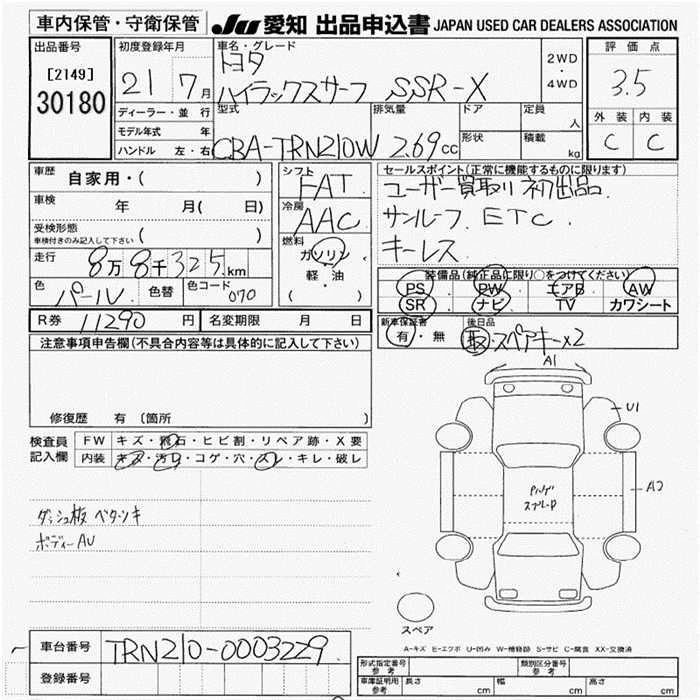 車内保管・守衛保管 JU 愛知 出品申込書 JAPAN USED CAR DEALERS ASSOCIATION
出品番号
[2149]
30180
初度登録年月
21 7月
ディーラー・並行
モデル年式 年
ハンドル 左・右
車名・グレード
トヨタ
ハイラックスサーフ SSR-X
2WD
・
4WD
型式
CBA-TRN210W
排気量
2.69cc
ドア
形状
定員
人
積載
kg
評価点
3.5
外装 内装
C C
車歴
自家用・( )
車検
年 月( 日)
受検形態
車検付きのみ記入して下さい ( )
走行
8万8千325km
色
パール
色替
色コード
070
シフト
FAT
冷房
AAC
燃料
ガソリン
軽・油
( )
セールスポイント(正常に機能するものに限ります)
ユーザー買取り 初出品.
サンルーフ. ETC.
キーレス
装備品(純正品に限り○をつけてください)
PS PW エアB AW
SR ナビ TV カワシート
R券 11290円 名変期限 月 日
新車保証書
有・無
後日品
取.スペアキーx2
注意事項申告欄(不具合内容等は具体的に記入して下さい)
修復歴 有 〔箇所 〕
検査員
記入欄
FW キズ・飛石・ヒビ割・リペア跡・X要
内装 キズ・汚れ・コゲ・穴・スレ・キレ・破レ
ダッシュ板 ベタツキ
ボディーAU
A1
U1
A2
スペア
A-キズ E-エクボ U-凹み W-補修跡 S-サビ C-腐食 XX-交換済
車台番号 TRN210-0003229
登録番号
形式指定番号
参考
類別区分番号
参考
車庫証明用
参考
長さ cm 幅 cm 高さ cm